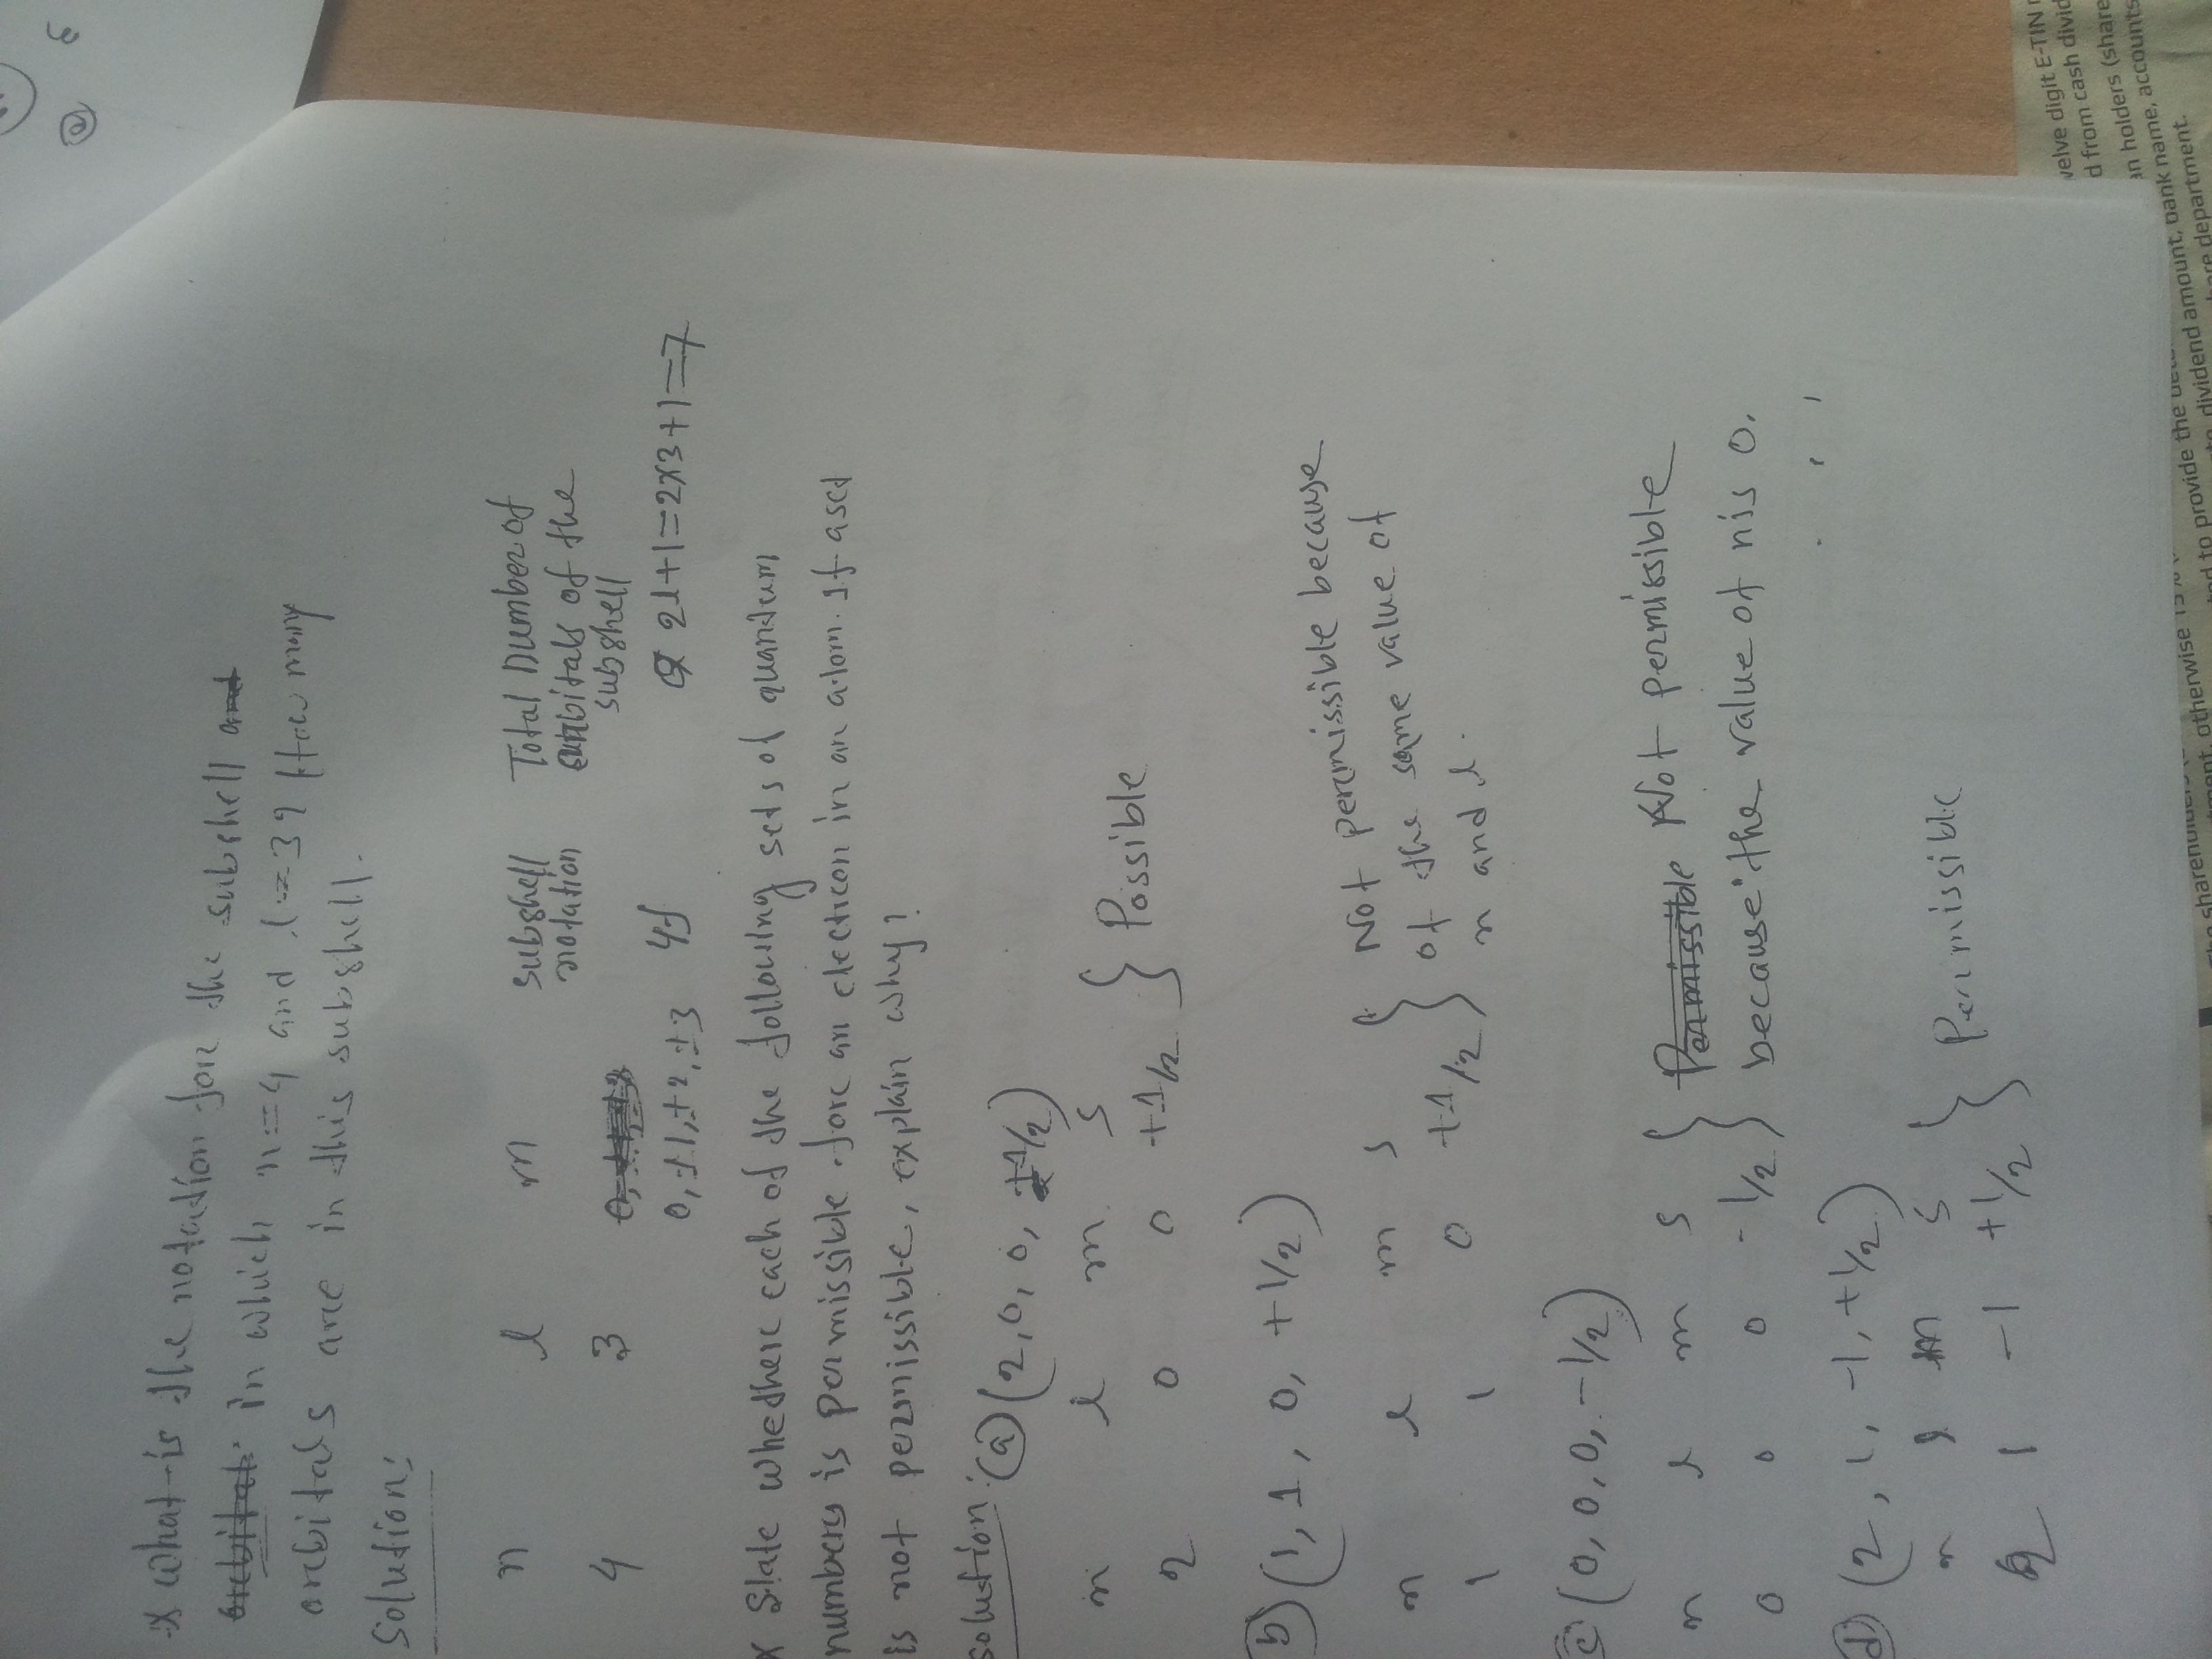 * What is the notation forr the subshell and
orcbital. in which n=4 and l=3? How many
orcbitals arce in this subshell.
Solution:
n l m subshell notation Total Number of orbitals of the subshell
4 3 0, ±1, ±2, ±3 4f 2l+1=2x3+1=7
x State whetherc each of the following sets of quantum
numbers is permissible forc an electrcon in an atom. If a set
is not permissible, explain why?
solution: (a) (2, 0, 0, +1/2)
n l m s
2 0 0 +1/2 } Possible
(b) (1, 1, 0, +1/2)
n l m s
1 1 0 +1/2 } Not percmissible because
of the same value of
n and l.
(c) (0, 0, 0, -1/2)
n l m s
0 0 0 -1/2 } Permissible Not permissible
because the value of n is 0.
(d) (2, 1, -1, +1/2)
n l m s
2 1 -1 +1/2 } Permissible
welve digit E-TIN
d from cash divid
an holders (share
bank name, accounts
otherwise 15%
to provide the
dividend amount,
department.